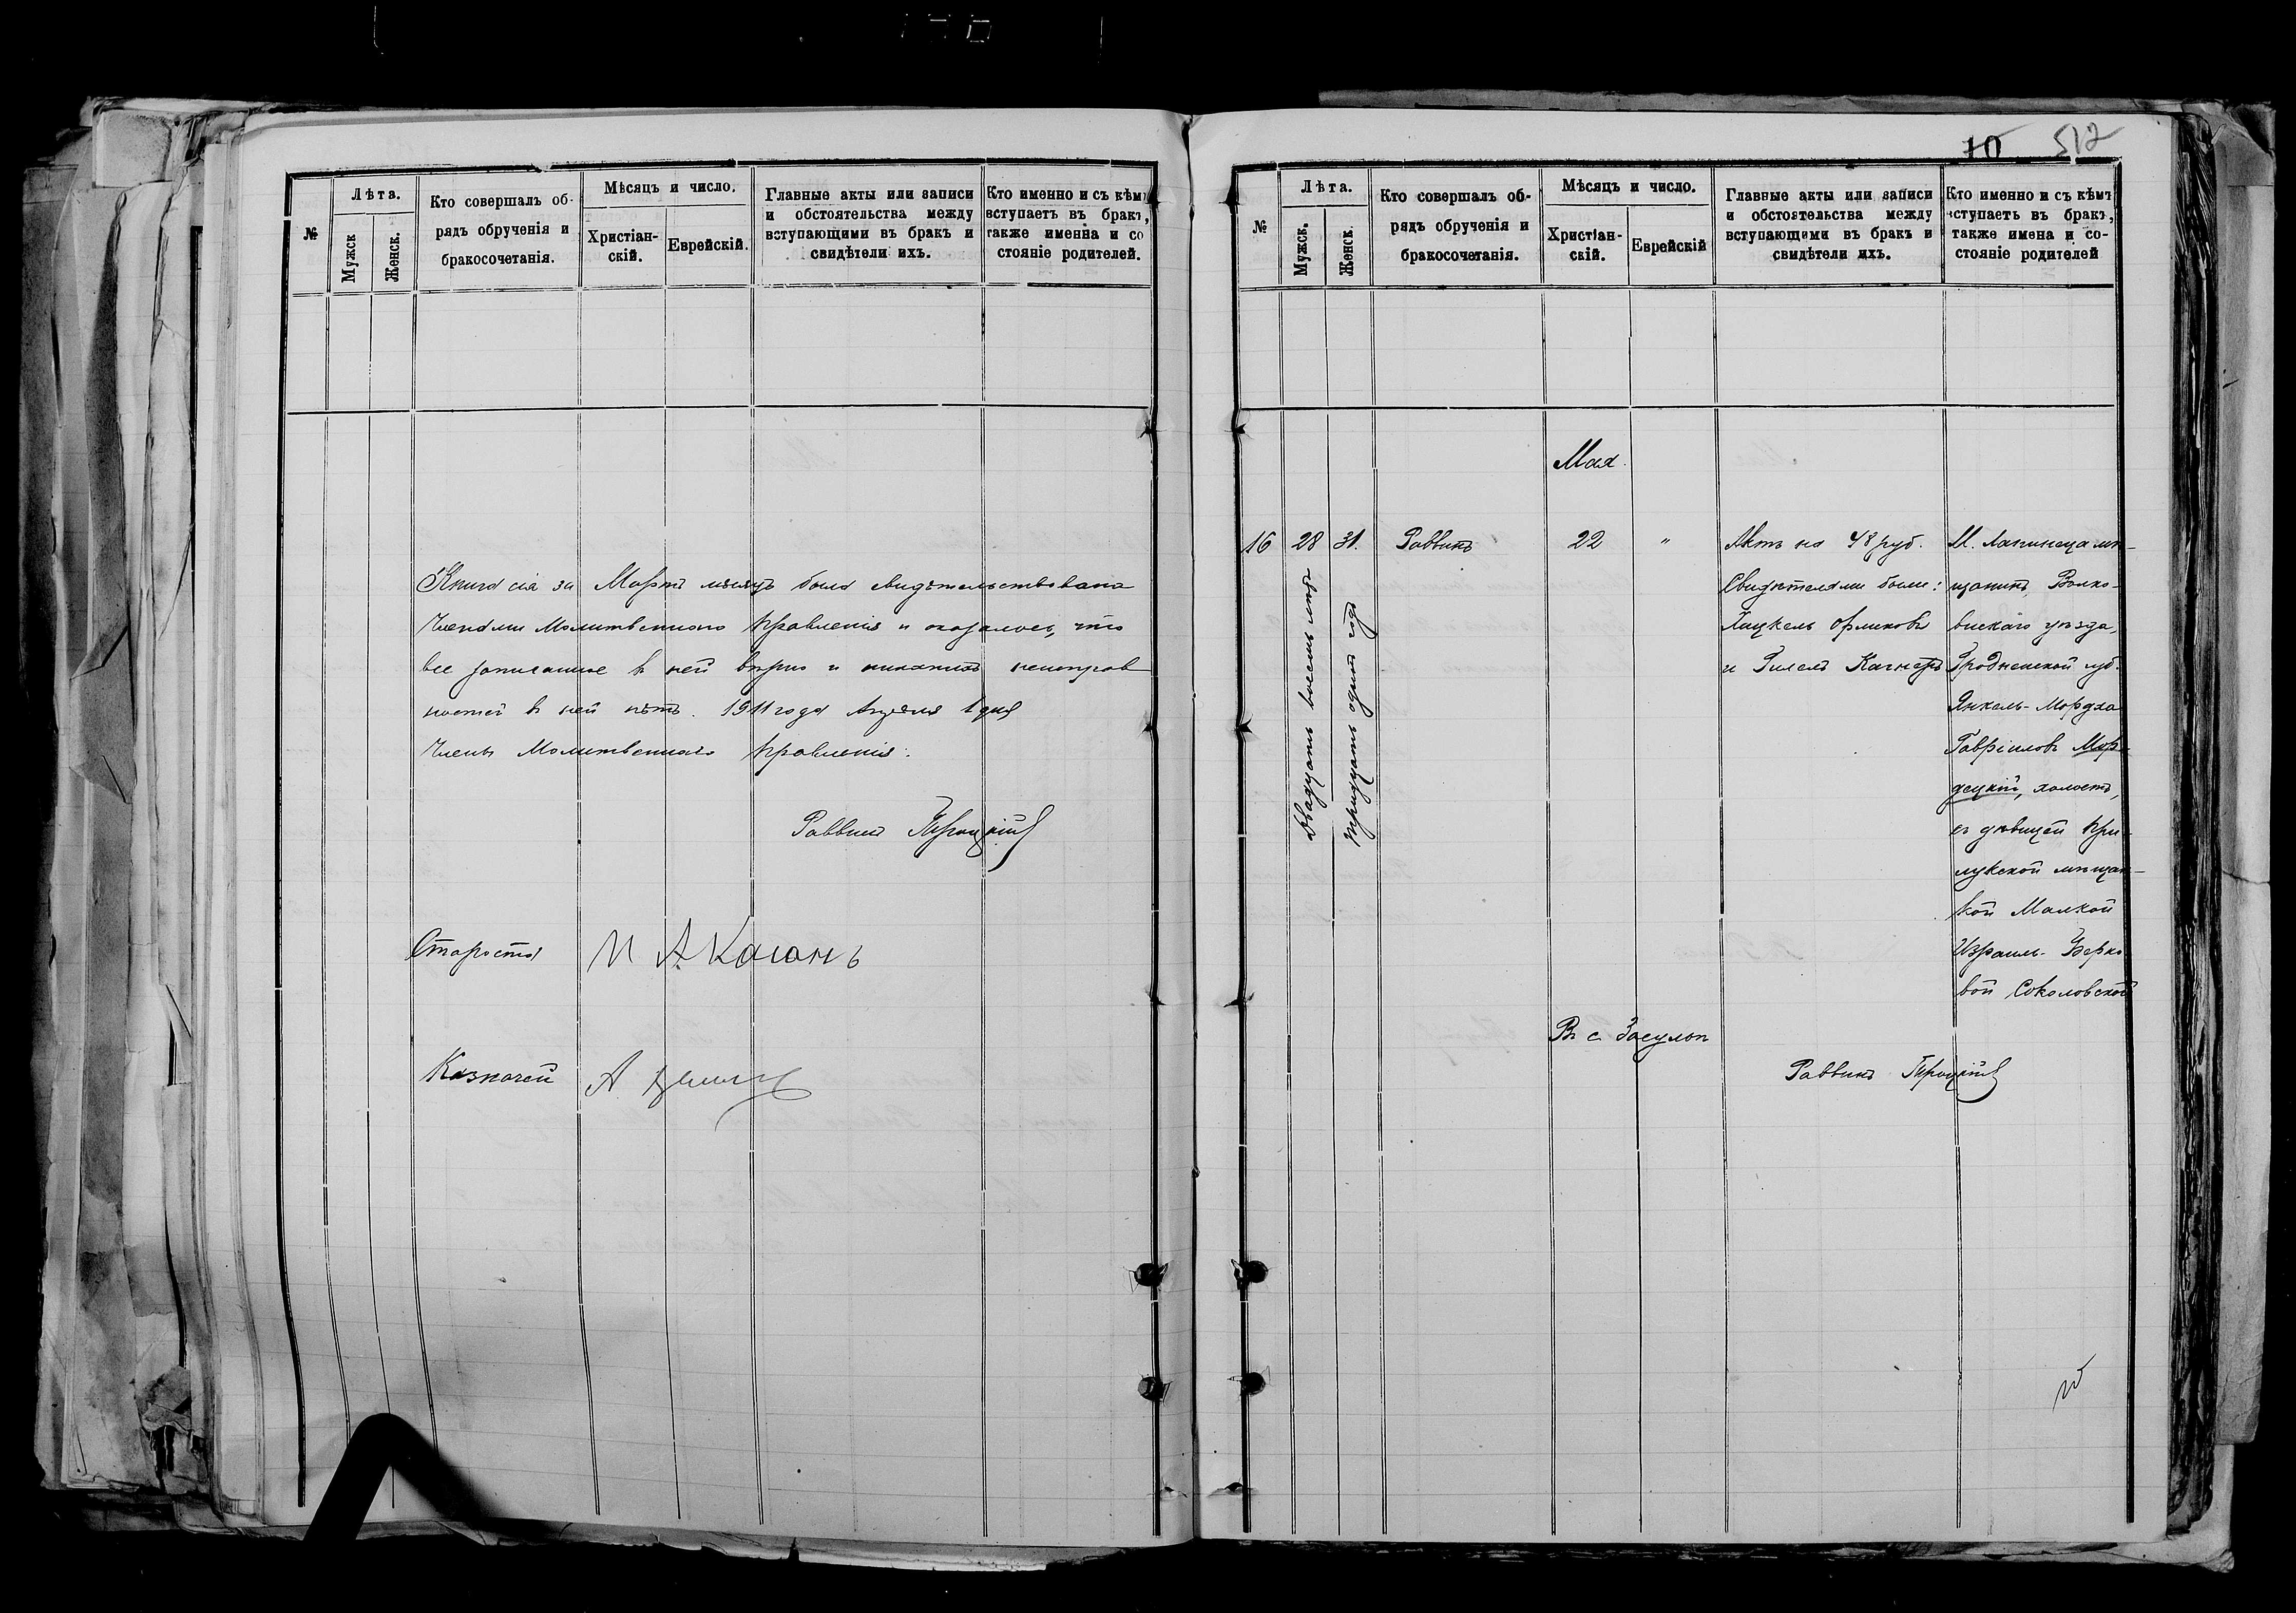 №
Лѣта.
Мужск
Женск.
Кто совершалъ об-
рядъ обрученія и
бракосочетанія.
Мѣсяцъ и число.
Христіан-
скій.
Еврейскій.
Главные акты или записи
и обстоятельства между
вступающими въ бракъ и
свидѣтели ихъ.
Кто именно и съ кѣмъ
вступаетъ въ бракъ,
также имена и со
стояніе родителей.
Книга сія за Мартъ мѣсяцъ была свидѣтельствована
Членами Молитвеннаго Правленія и оказалось, что
все записанное въ ней вѣрно и никакихъ неисправ
ностей въ ней нѣтъ. 1911 года Апрѣля 1 дня
Члены Молитвеннаго Правленія:
Раввинъ
Староста И А. Каганъ
Казначей А.
10 512
№
Лѣта.
Мужск.
Женск.
Кто совершалъ об-
рядъ обрученія и
бракосочетанія.
Мѣсяцъ и число.
Христіан-
скій.
Еврейскій
Главные акты или записи
и обстоятельства между
вступающими въ бракъ и
свидѣтели ихъ.
Кто именно и съ кѣмъ
вступаетъ въ бракъ,
также имена и со-
стояніе родителей
Мая.
16
28
Двадцать восемь лѣтъ
31.
Тридцать одинъ годъ
Раввинъ
22
"
Актъ на 48 руб.
Свидѣтелями были:
Хацкель Орликовъ
и Гилелъ Кагнеръ
М. Лапиница мѣ-
щанинъ, Волко-
вискаго уѣзда,
Гродненской губ.
Янкель-Мордха
Гавріиловъ Мор-
децкій, холостъ,
съ дѣвицей При-
лукской мѣщан-
кой Малкой
Израиль-Берко
вой Соколовской
Въ с. Засульѣ
Раввинъ